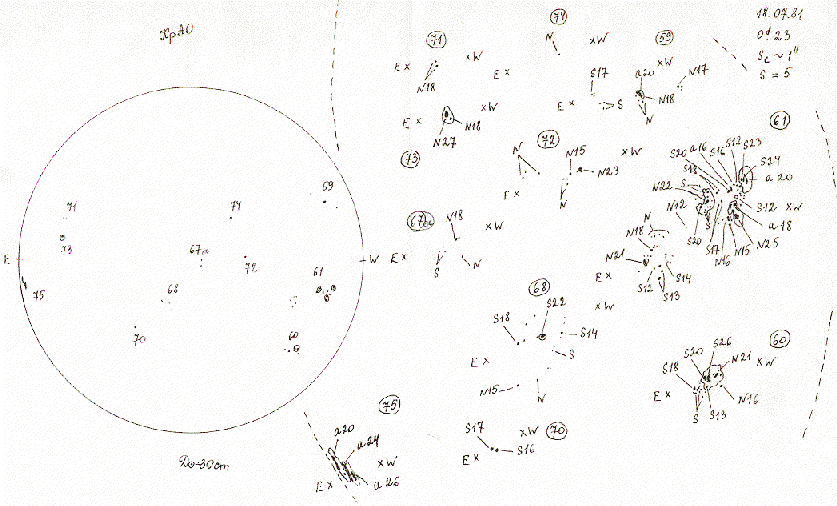 КрАО
18.07.81
S = 5
71
E x
x W
N18
E x
x W
N27
N18
73
74
N
x W
E x
59
S17
x W
N17
E x
S
N18
N
72
N
N15
N23
x W
E x
N
61
S20
a16
S16
S12
S23
S18
S24
a20
N22
S
S12
x W
N12
a18
S20
S
S17
N16
N15
N25
N
N18
N21
E x
S12
S14
S13
N18
x W
E x
S
N
68
S22
x W
S18
S14
E x
S
N15
N
60
S26
S20
N21
x W
S18
E x
N16
S
S13
70
S17
x W
E x
S16
75
a20
a24
x W
E x
a25
59
71
74
73
67a
E
W
72
61
75
68
70
60